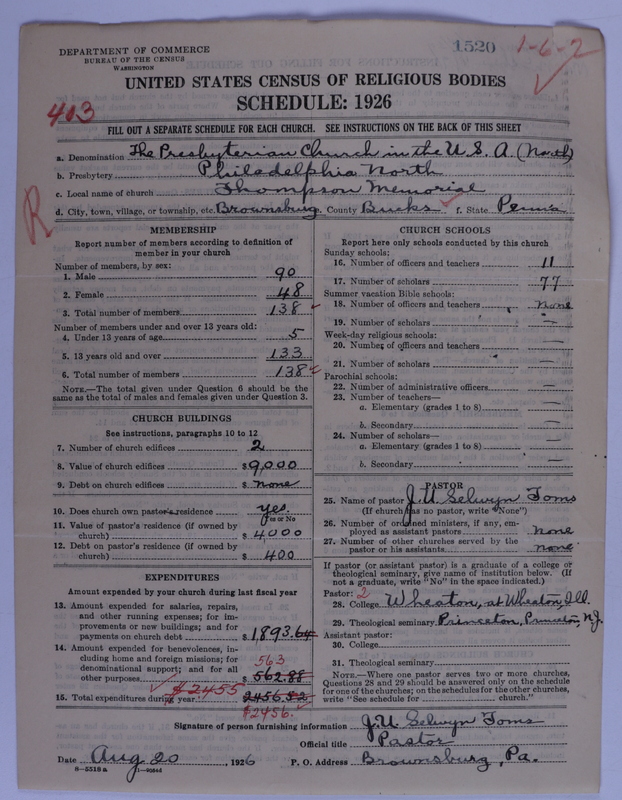 DEPARTMENT OF COMMERCE
BUREAU OF THE CENSUS
WASHINGTON
1520
1-6-2
UNITED STATES CENSUS OF RELIGIOUS BODIES
SCHEDULE: 1926
403
FILL OUT A SEPARATE SCHEDULE FOR EACH CHURCH. SEE INSTRUCTIONS ON THE BACK OF THIS SHEET
a. Denomination The Presbyterian Church in the U.S.A. (North)
b. Presbytery Philadelphia North
c. Local name of church Thompson Memorial
d. City, town, village, or township, etc. Brownsburg County Bucks f. State Penna
R
MEMBERSHIP
Report number of members according to definition of
member in your church
Number of members, by sex:
1. Male 90
2. Female 48
3. Total number of members 138
Number of members under and over 13 years old:
4. Under 13 years of age 5
5. 13 years old and over 133
6. Total number of members 138
NOTE.—The total given under Question 6 should be the
same as the total of males and females given under Question 3.
CHURCH BUILDINGS
See instructions, paragraphs 10 to 12
7. Number of church edifices 2
8. Value of church edifices $9,000
9. Debt on church edifices $ none
10. Does church own pastor's residence yes.
Yes or No
11. Value of pastor's residence (if owned by
church) $ 4000
12. Debt on pastor's residence (if owned by
church) $ 400
EXPENDITURES
Amount expended by your church during last fiscal year
13. Amount expended for salaries, repairs,
and other running expenses; for im-
provements or new buildings; and for
payments on church debt $1893.64
14. Amount expended for benevolences, in-
cluding home and foreign missions; for
denominational support; and for all 563
other purposes $562.88
15. Total expenditures during year $2455 2456.52
$2456.
CHURCH SCHOOLS
Report here only schools conducted by this church
Sunday schools:
16. Number of officers and teachers 11
17. Number of scholars 77
Summer vacation Bible schools:
18. Number of officers and teachers none
19. Number of scholars —
Week-day religious schools:
20. Number of officers and teachers —
21. Number of scholars —
Parochial schools:
22. Number of administrative officers —
23. Number of teachers—
a. Elementary (grades 1 to 8) —
b. Secondary —
24. Number of scholars—
a. Elementary (grades 1 to 8) —
b. Secondary —
PASTOR
25. Name of pastor J.U. Selwyn Toms
(If church has no pastor, write "None")
26. Number of ordained ministers, if any, em-
ployed as assistant pastors none
27. Number of other churches served by the
pastor or his assistants none
If pastor (or assistant pastor) is a graduate of a college or
theological seminary, give name of institution below. (If
not a graduate, write "No" in the space indicated.)
Pastor: 2
28. College Wheaton, at Wheaton, Ill.
29. Theological seminary Princeton, Princeton, N.J.
Assistant pastor:
30. College
31. Theological seminary
NOTE.—Where one pastor serves two or more churches,
Questions 28 and 29 should be answered only on the schedule
for one of the churches; on the schedules for the other churches,
write "See schedule for church."
Signature of person furnishing information J.U. Selwyn Toms
Official title Pastor
Date Aug 20, 1926 P. O. Address Brownsburg, Pa.
8—5518a